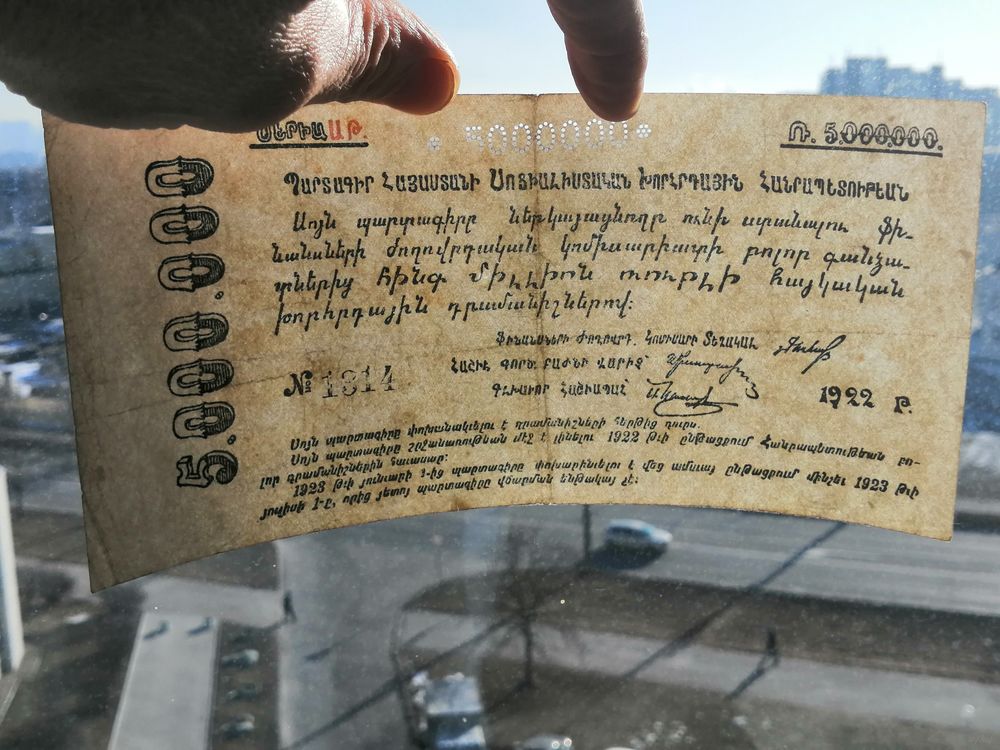 ՍԵՐԻԱ ԱԹ.
* 5000000 *
Ռ. 5.000.000.
5.000.000
Պարտագիր Հայաստանի Սոցիալիստական Խորհրդային Հանրապետութեան
Սոյն պարտագիրը ներկայացնողը ունի ստանալու ֆի-
նանսների ժողովրդական կոմիսարիատի բոլոր գանձա-
րաններից հինգ միլլիոն ռուբլի հայկական
խորհրդային դրամանիշներով:
Ֆինանսների Ժողովրդ. Կոմիսարի Տեղակալ
Հաշիւ. Գործ. Բաժնի Վարիչ
Գլխաւոր Հաշուապահ
№ 1314
1922 Թ.
Սոյն պարտագիրը փոխանակելու է դրամանիշների հերթից դուրս.
Սոյն պարտագիրը շրջանառութեան մէջ է լինելու 1922 թւի ընթացքում Հանրապետութեան բո-
լոր դրամանիշներին հաւասար:
1923 թւի յունւարի 1-ից պարտագիրը փոխարինւելու է մեց ամսւայ ընթացքում մինչեւ 1923 թւի
յուլիսի 1-ը, որից յետոյ պարտագիրը վճարման ենթակայ չէ: